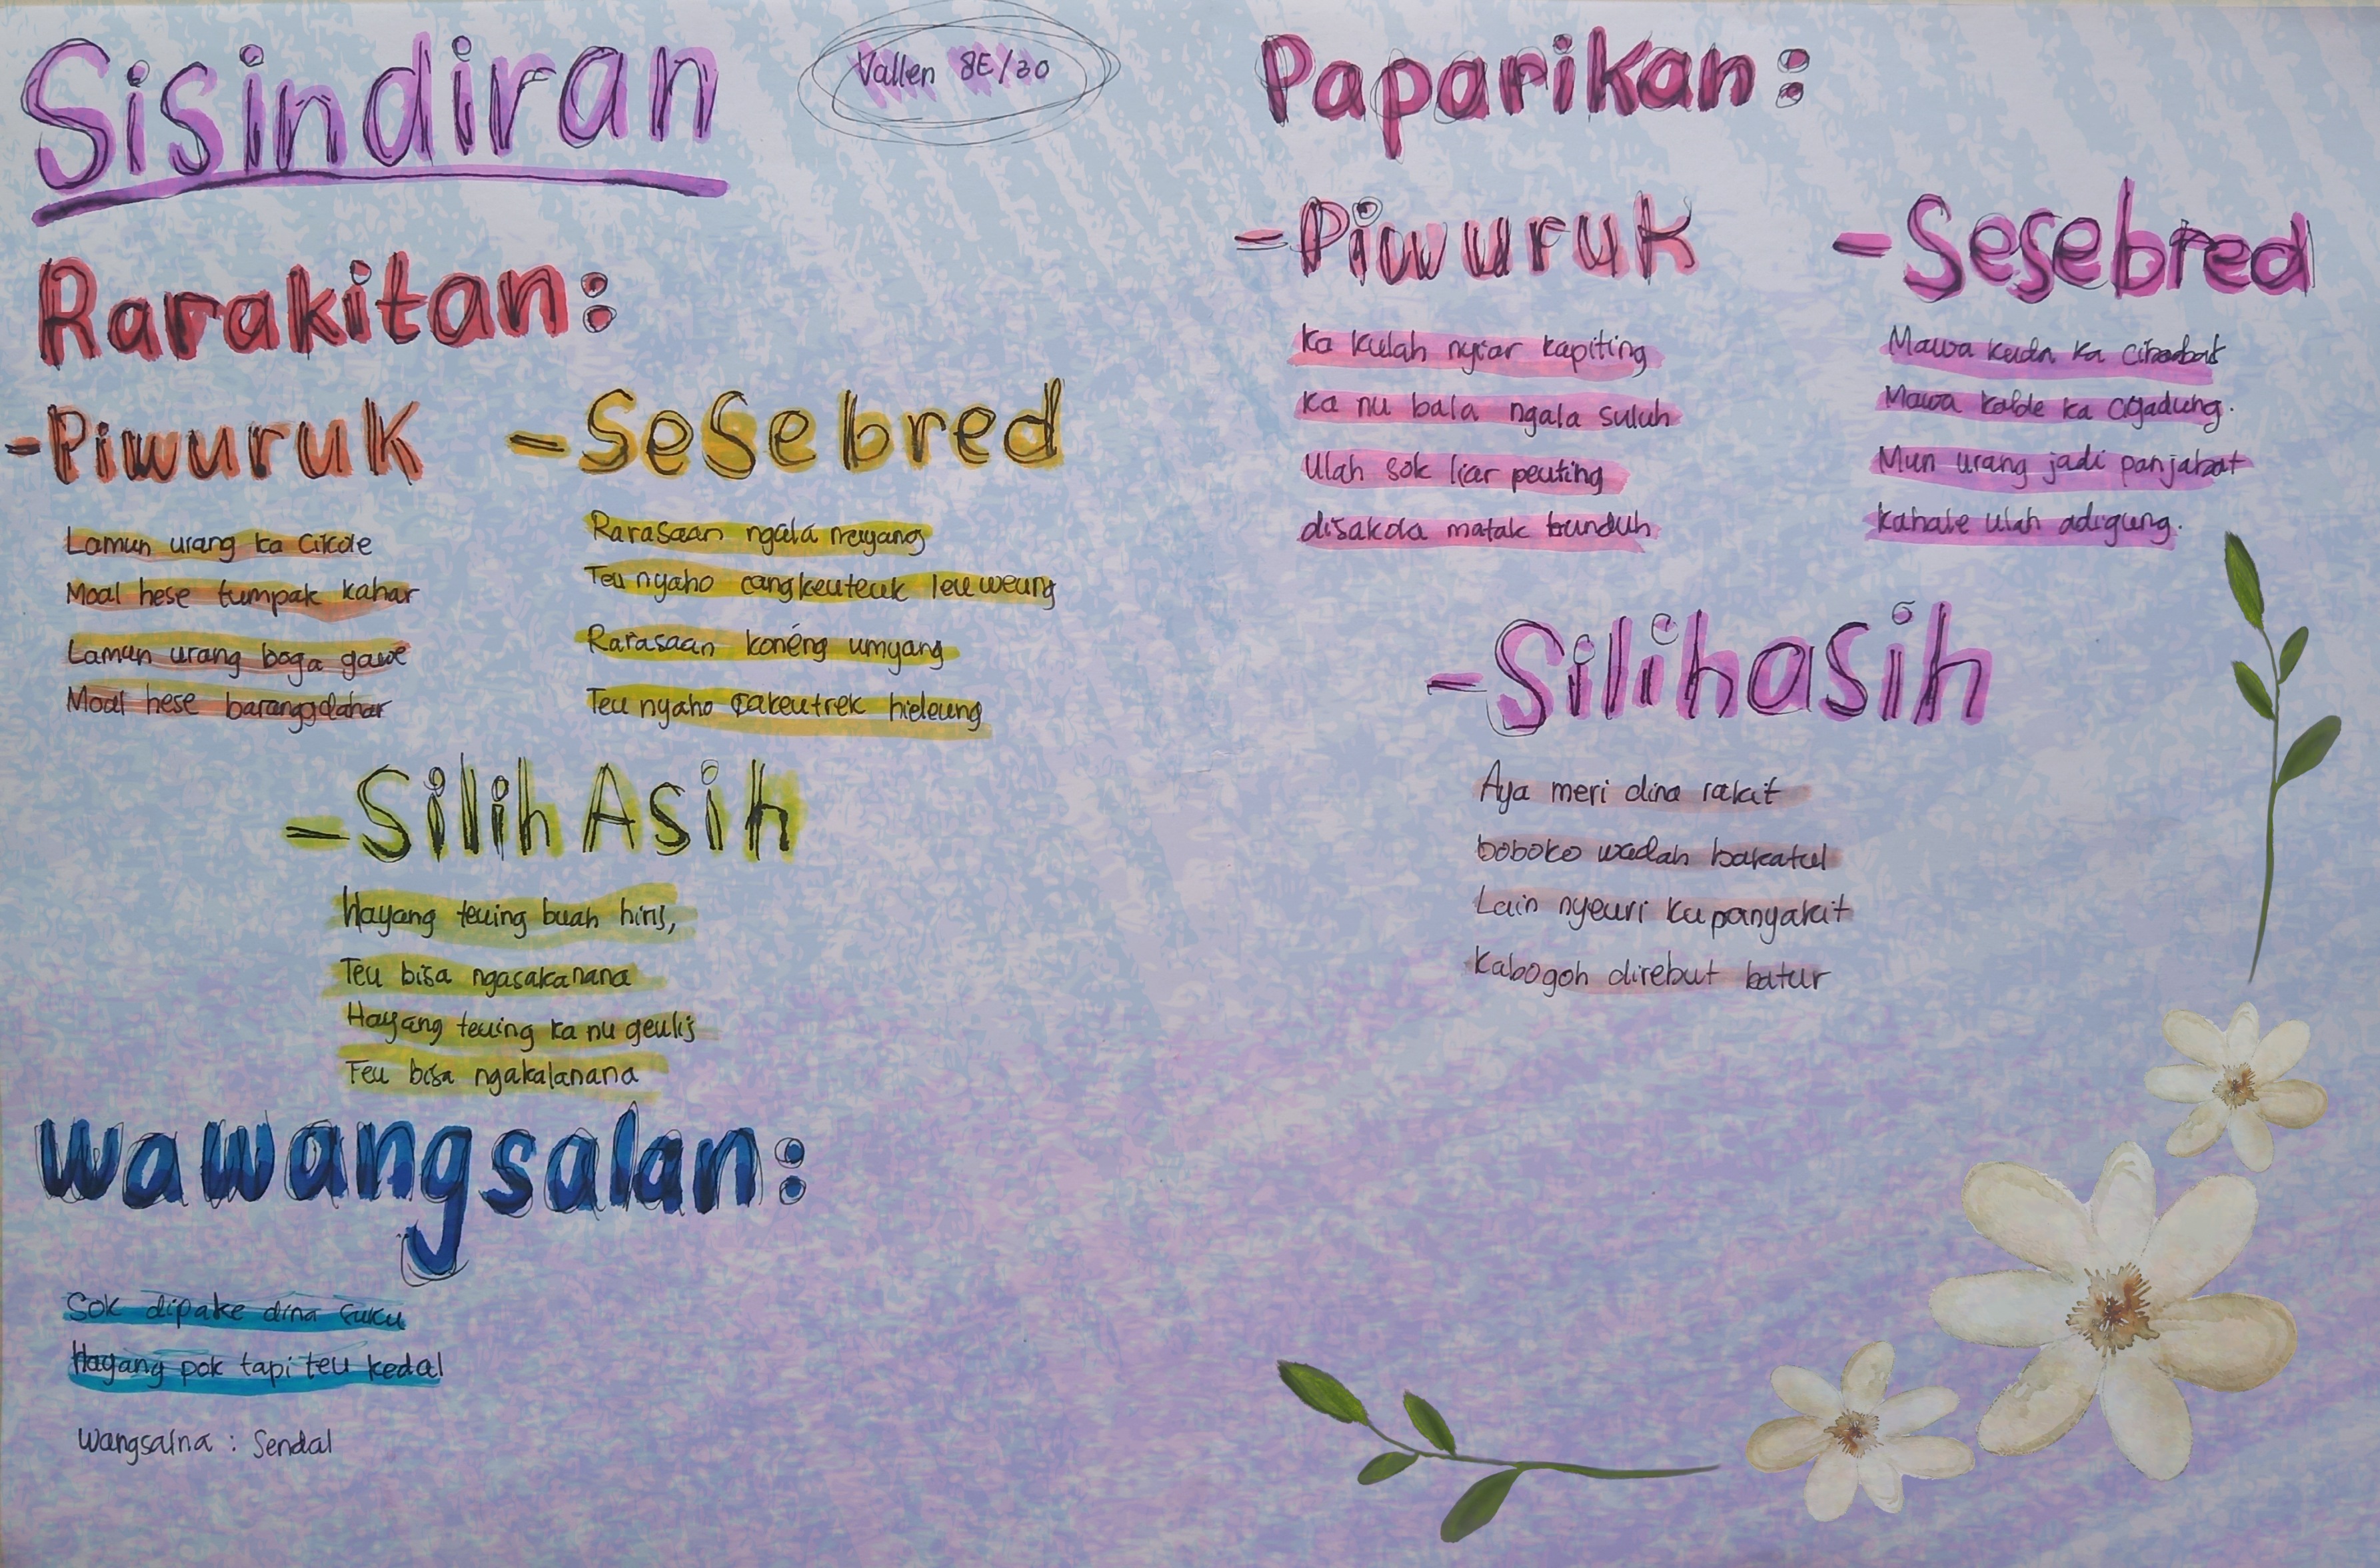 Sisindiran
Vallen 8E/30
Rarakitan:
-Piwuruk
Lamun urang ka Cikole
Moal hese tumpak kahar
Lamun urang boga gawe
Moal hese baranggdahar
-Sesebred
Rarasaan ngala nayang
Teu nyaho cangkeuteuk leuweung
Rarasaan konéng umyang
Teu nyaho cakeutrek hieleung
-Silih Asih
Hayang teuing buah hiris,
Teu bisa ngasakanana
Hayang teuing ka nu geulis
Teu bisa ngakalanana
Wawangsalan:
Sok dipake dina suku
Hayang pok tapi teu kedal
Wangsalna : Sendal
Paparikan:
-Piwuruk
Ka kulah nyiar kapiting
Ka nu bala ngala suluh
Ulah sok liar peuting
disakola matak tunduh
-Sesebred
Mawa kuda ka
Mawa kalde ka Cigadung.
Mun urang jadi panjabat
kahade ulah adigung.
-Silihasih
Aya meri dina rakit
boboko wadah bakatul
Lain nyeuri ku panyakit
Kabogoh direbut batur